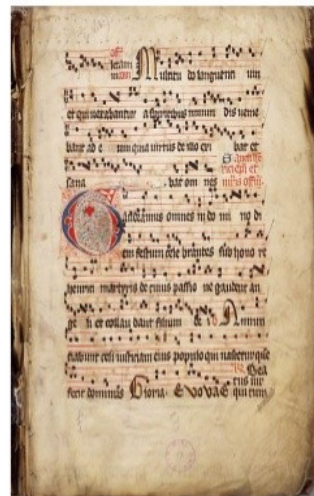 Multitu do languenti um
et qui vexabantur a spiritibus inmun dis venie
bant ad e um quia virtus de illo exi bat et
sana bat om nes
Gaudeamus omnes in do mi no di
em festum cele brantes sub hono re
henrici martyris de cuius passio ne gaudent an
ge li et collau dant filium de i Annun
tiabunt celi iusticiam eius populo qui nascetur que
fecit dominus Gloria. Evovae Bea
tus vir
qui tim